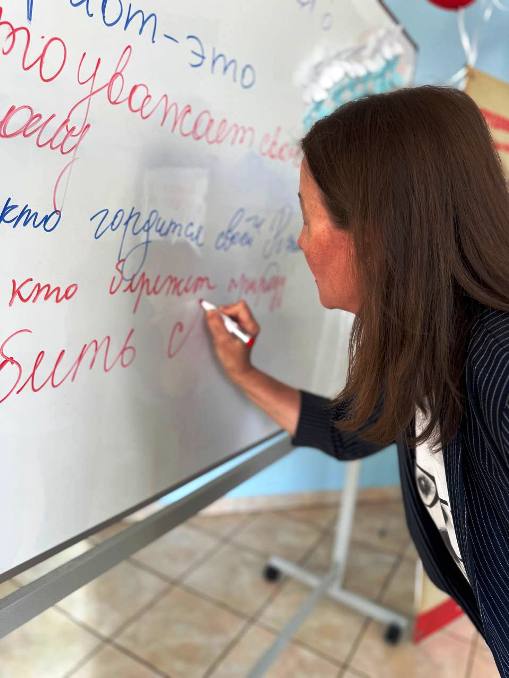 иот-это
то уважает сво
ану
кто гордится своей
кто бережет природу
бить с